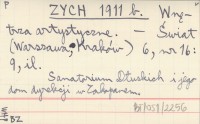 P ZYCH 1911 b. Wnę-
trza artystyczne. — Świat
(Warszawa, Kraków) 6, nr 16:
9, il.
Sanatorium Dłuskich i jego
dom dyrekcji w Zakopanem.
BZ